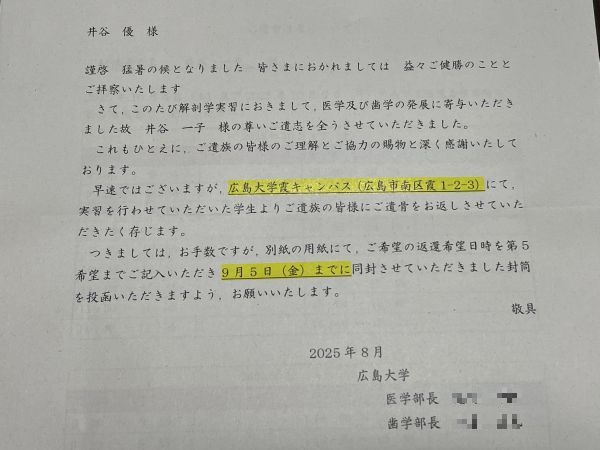 井谷 優 様
謹啓 猛暑の候となりました 皆さまにおかれましては 益々ご健勝のことと
ご拝察いたします
さて,このたび解剖学実習におきまして,医学及び歯学の発展に寄与いただき
ました故 井谷 一子 様の尊いご遺志を全うさせていただきました。
これもひとえに,ご遺族の皆様のご理解とご協力の賜物と深く感謝いたして
おります。
早速ではございますが,広島大学霞キャンパス(広島市南区霞1-2-3)にて,
実習を行わせていただいた学生よりご遺族の皆様にご遺骨をお返しさせていた
だきたく存じます。
つきましては,お手数ですが,別紙の用紙にて,ご希望の返還希望日時を第5
希望までご記入いただき9月5日(金)までに同封させていただきました封筒
を投函いただきますよう,お願いいたします。
敬具
2025年8月
広島大学
医学部長
歯学部長